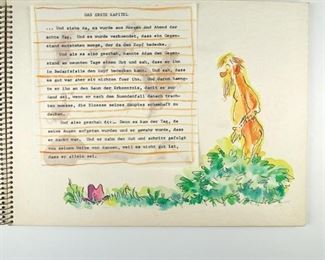 DAS ERSTE KAPITEL
... Und siehe da, es wurde aus Morgen und Abend der
achte Tag. Und es wurde verkuendet, dass ein Gegen-
stand entstehen moege, der da den Kopf bedecke.
Und als also geschah, nannte Adam den Gegen-
stand am neunten Tage einen Hut und sah, dass er ihm
im Bedarfsfalle den Kopf bedecken kann. Und sah, dass
es gut war aber als nichten fuer ihn. Und darum haeng-
te er ihn an den Baum der Erkenntnis, damit er zu-
hand sei, wenn er nach dem Suendenfall danach trach-
ten moesse, die Bloesse seines Hauptes schamhaft zu
decken.
Und also geschah es... Denn es kam der Tag, da
seine Augen aufgetan wurden und er gewahr wurde, dass
er nackt war. Und er nahm den Hut und schritt gefolgt
von seinem Weibe von dannen, weil es nicht gut ist,
dass er allein sei.